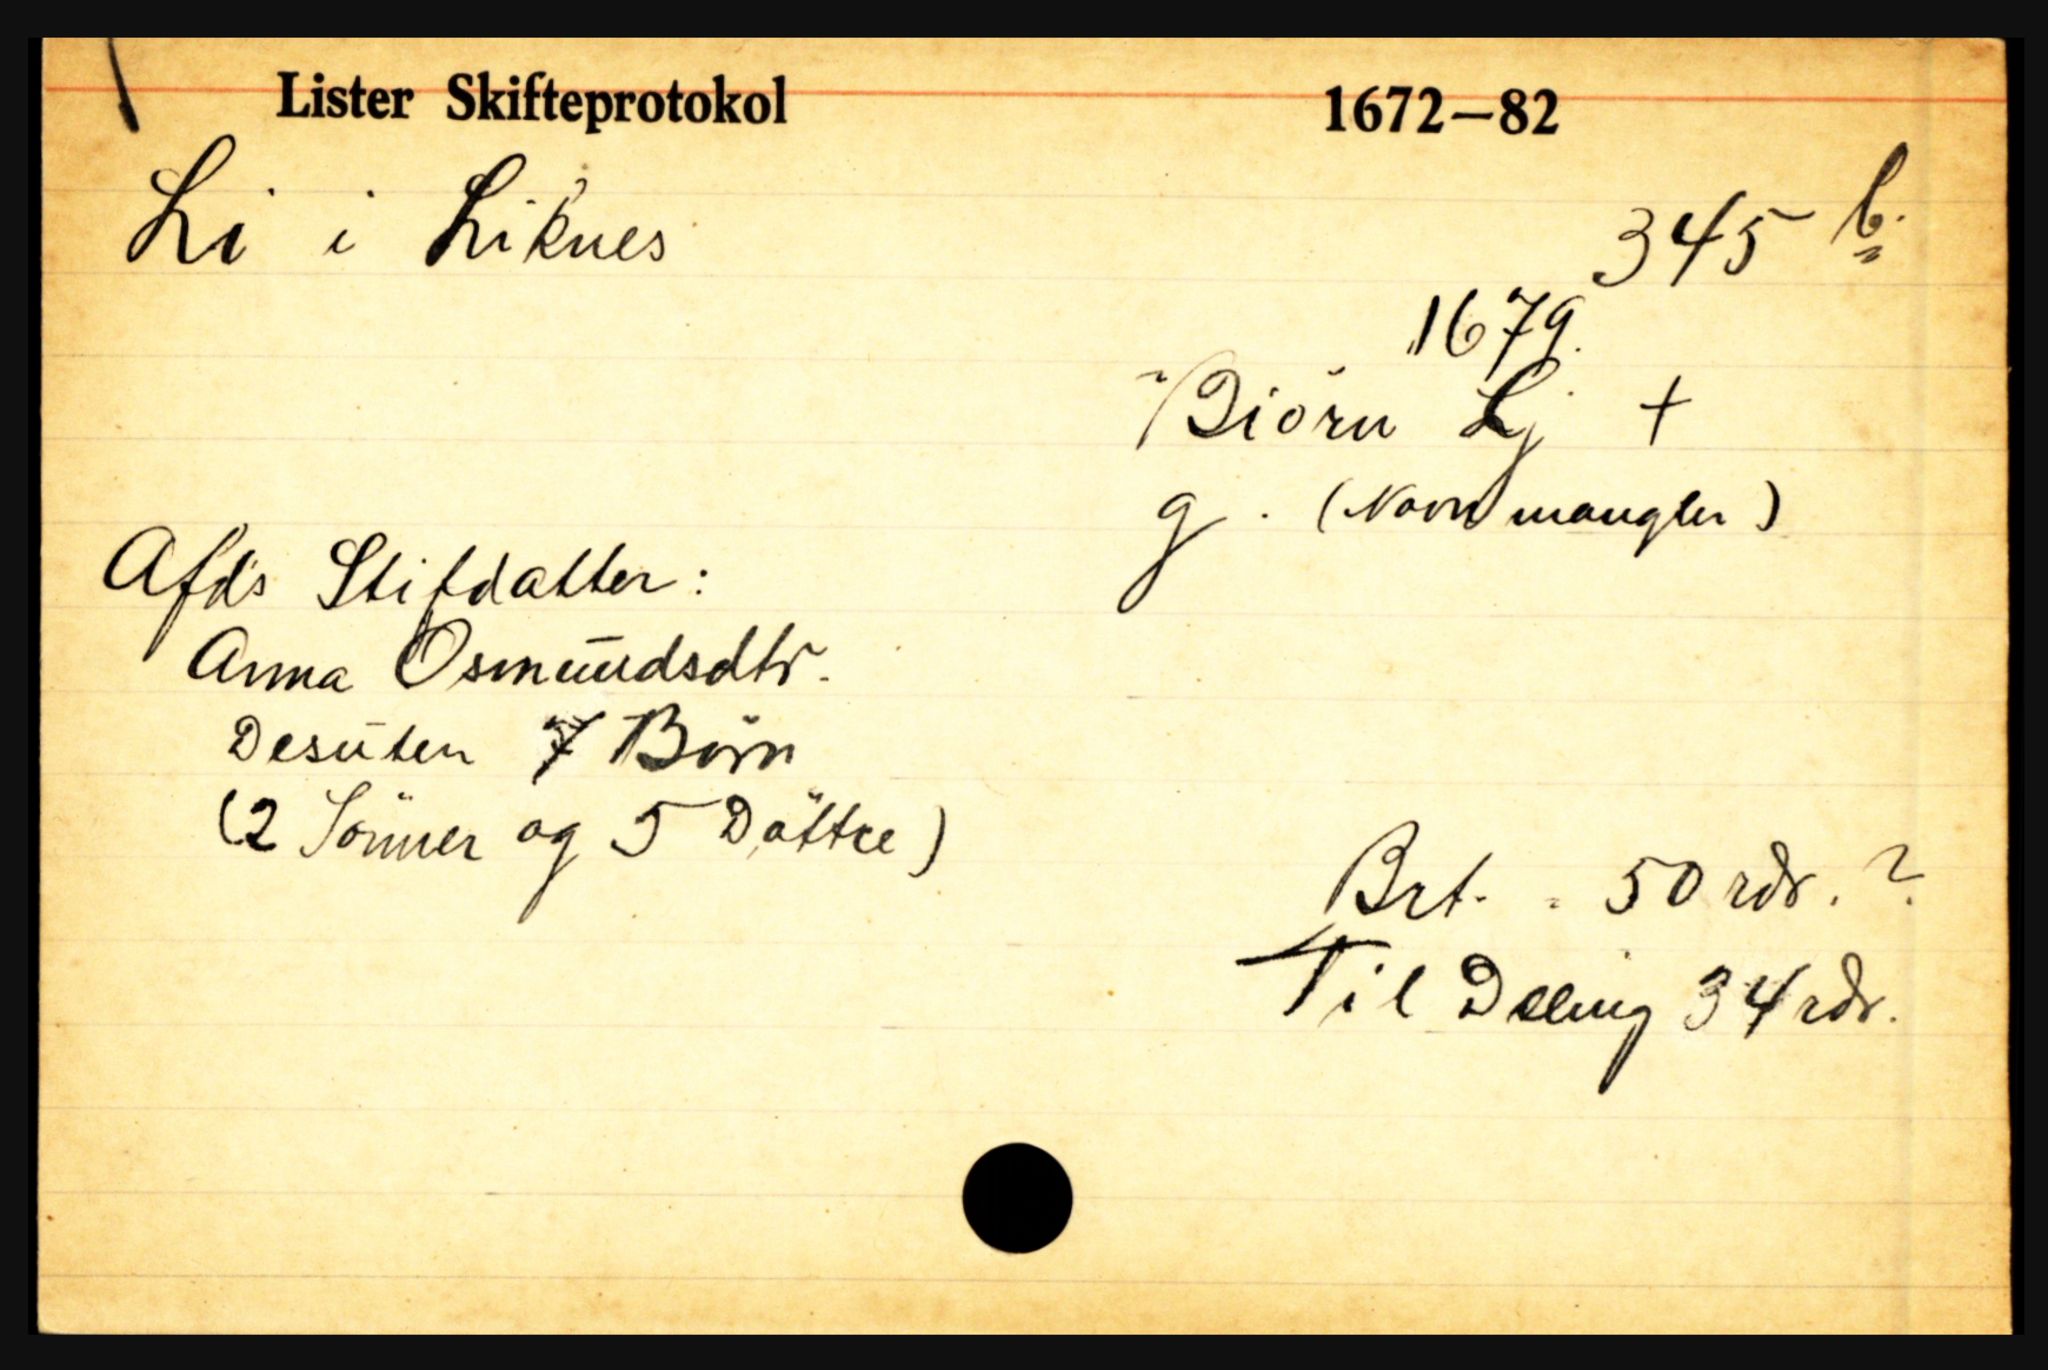 Lister Skifteprotokol 1672—82
Li i Liknes
345 b.
1679.
Biörn Lj +
g. (Navn mangler)
Afd's Stifdatter:
Anna Osmundsdtr.
Desuten 7 Börn
(2 Sönner og 5 Döttre)
Brt. = 50 rdr. ?
Til Deling 34 rdr.